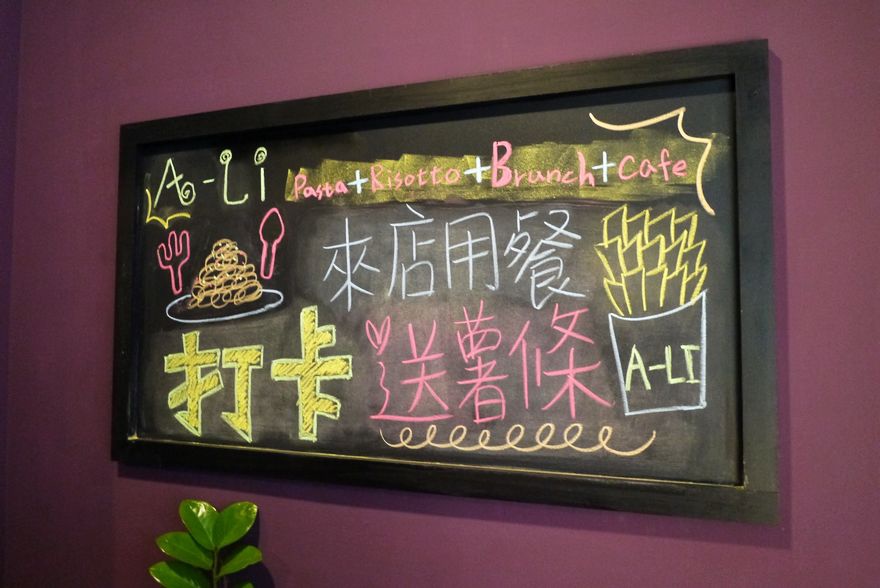 A-Li Pasta+Risotto+Brunch+Cafe
來店用餐
打卡 送薯條
A-LI